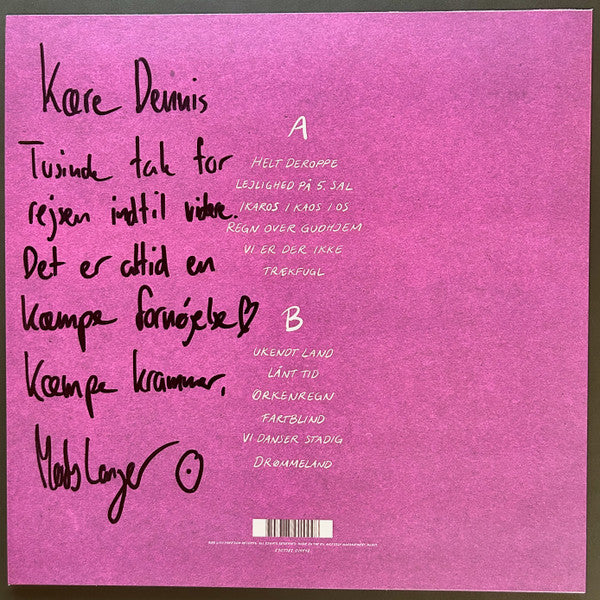 Kære Dennis
Tusinde tak for
rejsen indtil videre.
Det er altid en
kæmpe fornøjelse
Kæmpe krammer,
Mads Langer
A
HELT DEROPPE
LEJLIGHED PÅ 5. SAL
IKAROS I KAOS I OS
REGN OVER GUDHJEM
VI ER DER IKKE
TRÆKFUGL
B
UKENDT LAND
LÅNT TID
ØRKENREGN
FARTBLIND
VI DANSER STADIG
DRØMMELAND